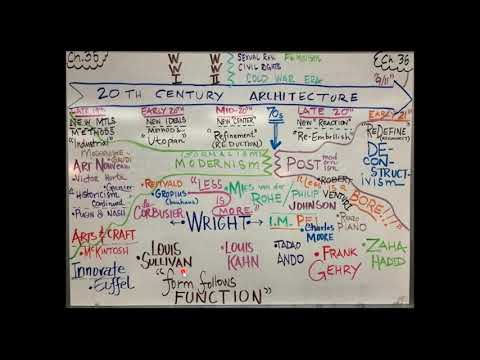 Ch. 35
WWI
WWII
SEXUAL REV. FEMINISM
CIVIL RIGHTS
COLD WAR ERA
"9/11"
Ch. 36
20TH CENTURY ARCHITECTURE
LATE 19th
EARLY 20th
MID-20th
70s
LATE 20th
EARLY 21st
NEW MTLS
METHODS
"Industrial"
NEW IDEALS
Methods
"Utopian"
NEW "CENTER"
"Refinement"
(REDUCTION)
NEW "REACTION"
"Re-Embellish"
REDEFINE
DE
CON
STRUCT-
IVISM
FORMALISM
MODERNISM
POST
modernism
Modernisme
GAUDI
ART NOUVEAU
Victor Horta
Garnier
"Historicism
Continued"
PUGIN & NASH
RIETVALD
GROPIUS
(bauhaus)
Le CORBUSIER
"LESS
is
MORE"
MIES van der
ROHE
"Less is a
BORE!!!"
ROBERT
VENTURI
PHILIP
JOHNSON
RENZO
PIANO
WRIGHT
I.M. PEI
Charles
MOORE
ARTS & CRAFT
McKINTOSH
LOUIS
SULLIVAN
LOUIS
KAHN
TADAO
ANDO
FRANK
GEHRY
ZAHA
HADID
Innovate
Eiffel
"form follows
FUNCTION"